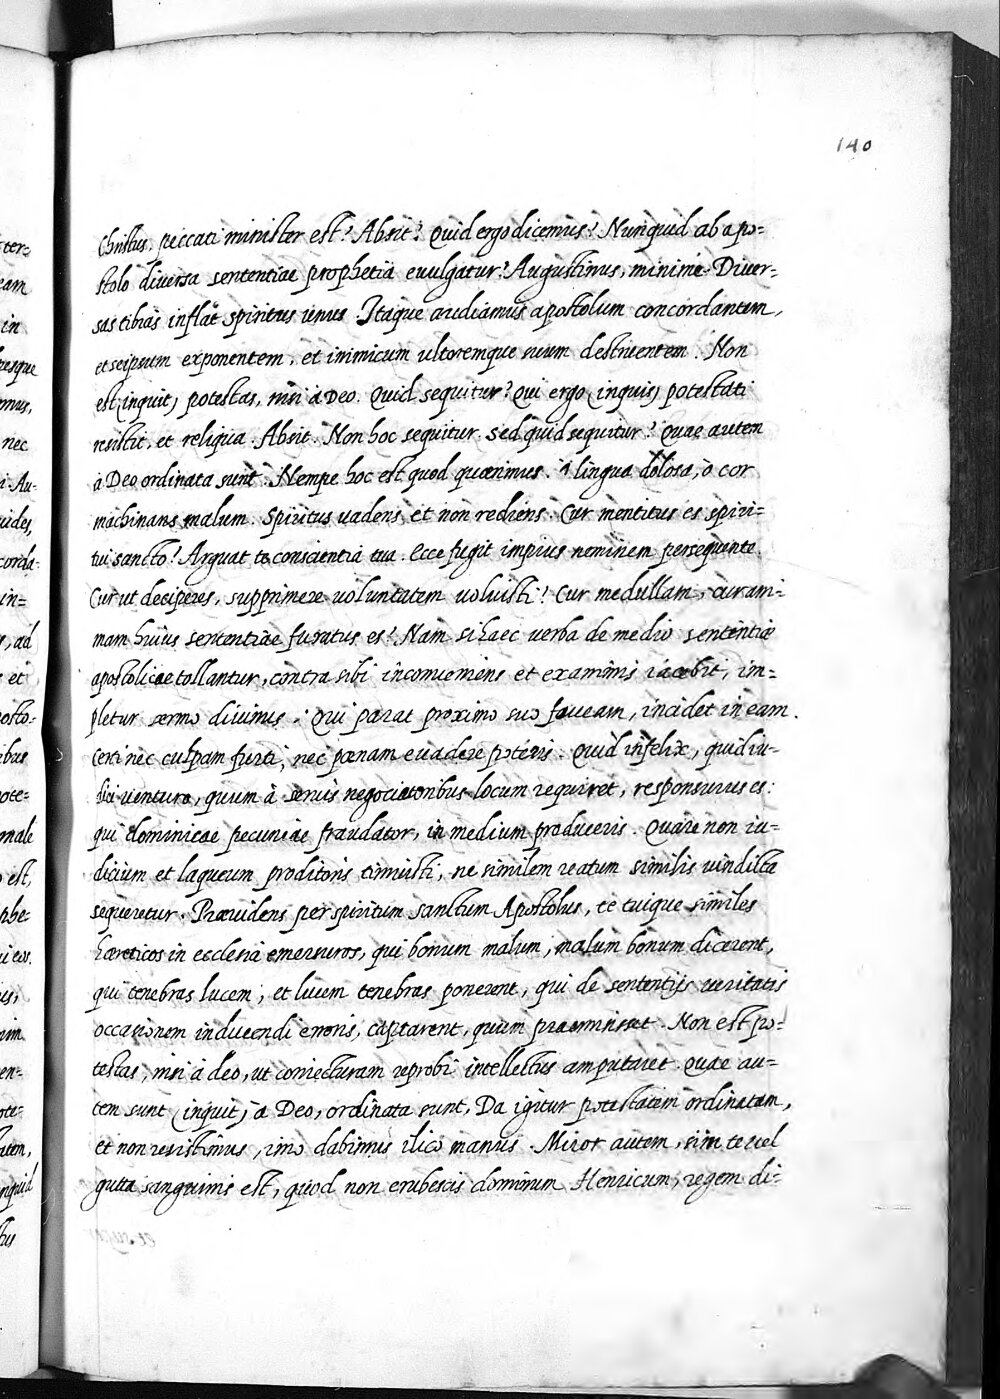 140
Christus, peccati minister est? Absit? Quid ergo dicemus? Nunquid ab apo=
stolo diversa sententiae prophetia evulgatur? Augustinus, minime. Diver-
sas tibias inflat spiritus unus. Itaque audiamus apostolum concordantem,
et seipsum exponentem, et inimicum ultoremque suum destruentem. Non
est (inquit) potestas, nisi à Deo. Quid sequitur? Qui ergo (inquis) potestati
resistit, et reliqua. Absit. Non hoc sequitur. Sed quid sequitur? Quae autem
à Deo ordinata sunt. Nempe hoc est quod quaerimus. ô lingua dolosa, ô cor
machinans malum. Spiritus vadens et non rediens. Cur mentitus es spiri=
tui sancto? Arguat te conscientia tua. Ecce fugit impius nemine persequente.
Cur ut deciperes, supprimere voluntatem voluisti? Cur medullam, cur ani=
mam huius sententiae furatus es? Nam si haec verba de medio sententiae
apostolicae tollantur, contra sibi inconveniens et exanimis iacebit, im=
pletur sermo divinus. Qui parat proximo suo foveam, incidet in eam.
Certi nec culpam furti, nec poenam evadere poteris. Quid infelix, quid iu-
dici venturo, quum à servis negociatoribus locum requiret, responsurus es:
qui dominicae pecuniae fraudator, in medium produceris. Quare non iu-
dicium et laqueum proditoris timuisti, ne similem reatum similis vindicta
sequeretur. Praevidens per spiritum sanctum Apostolus, te tuique similes
haereticos in ecclesia emersuros, qui bonum malum, malum bonum dicerent,
qui tenebras lucem, et lucem tenebras ponerent, qui de sententijs veritatis
occasionem inducendi erroris, captarent, quum praemisisset. Non est po=
testas, nisi à deo, ut coniecturam reprobi intellectus amputaret. Quae au=
tem sunt (inquit) à Deo, ordinata sunt, Da igitur potestatem ordinatam,
et non resistimus, imo dabimus ilico manus. Miror autem, si in te vel
gutta sanguinis est, quod non erubescis dominum Henricum, regem di=